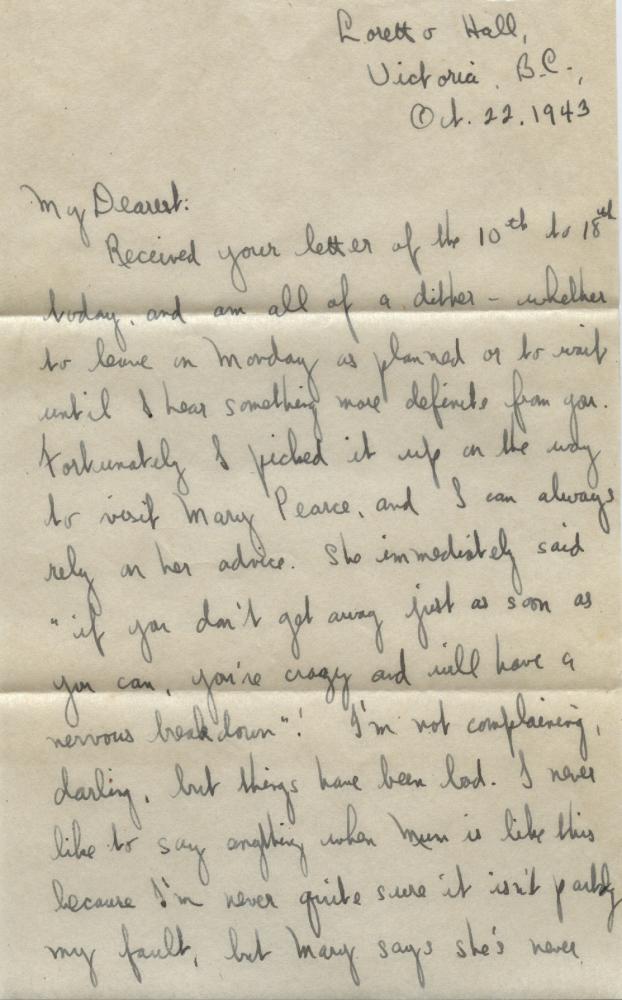 Loretto Hall,
Victoria, B.C.,
Oct. 22. 1943
My Dearest:
Received your letter of the 10th to 18th
today, and am all of a dither - whether
to leave on Monday as planned or to wait
until I hear something more definite from you.
Fortunately I picked it up on the way
to visit Mary Pearce, and I can always
rely on her advice. She immediately said
"if you don't get away just as soon as
you can, you're crazy and will have a
nervous breakdown"! I'm not complaining,
darling, but things have been bad. I never
like to say anything when Mum is like this
because I'm never quite sure it isn't partly
my fault, but Mary says she's never